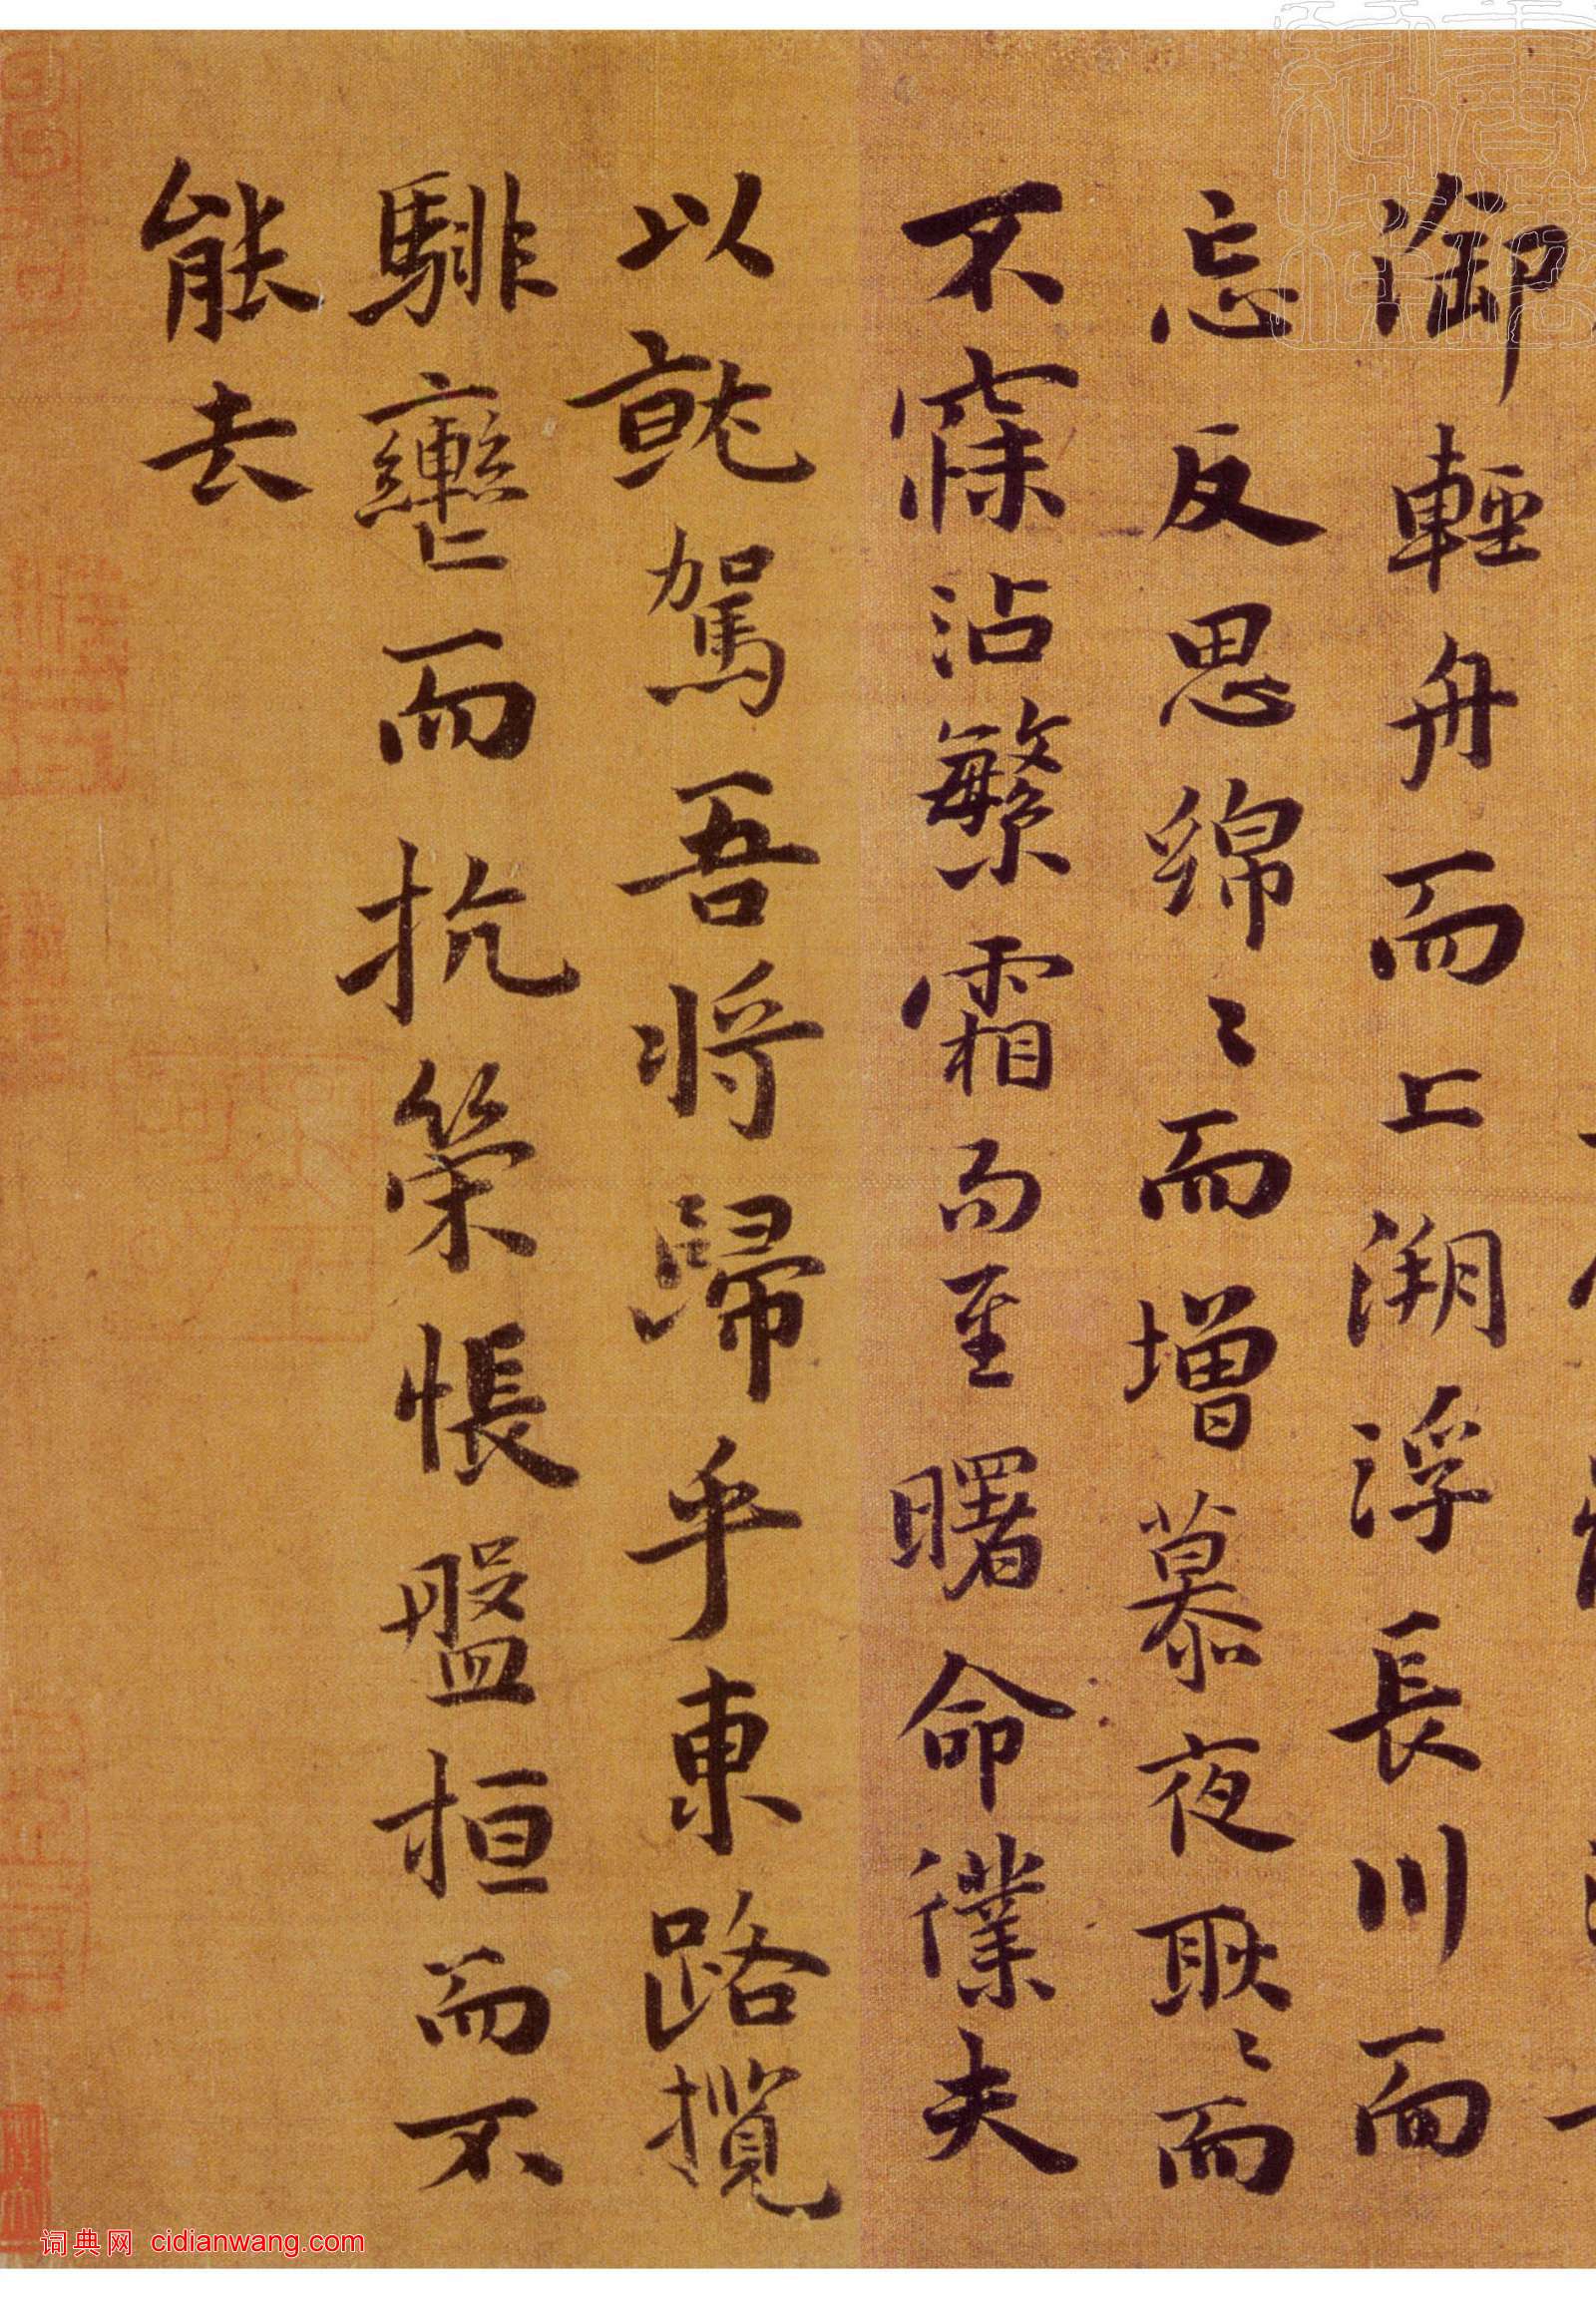 御輕舟而上溯浮長川而
忘反思綿〻而增慕夜耿〻而
不寐沾繁霜而至曙命僕夫
以就駕吾将歸乎東路攬
騑轡而抗策悵盤桓而不
能去
词典网 cidianwang.com